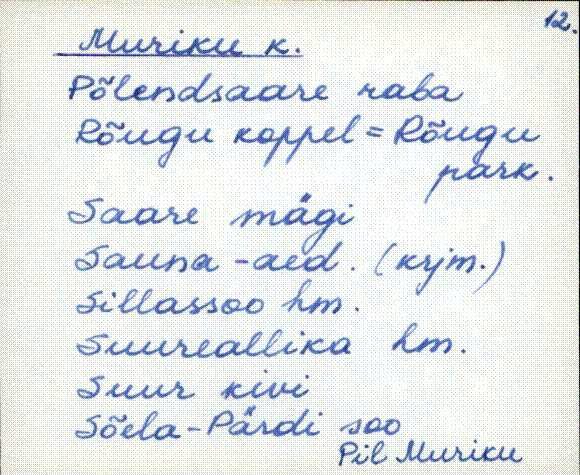 12.
Muriku k.
Põlendsaare raba
Rõugu koppel = Rõugu
park.
Saare mägi
Sauna-aed. (krjm.)
Sillassoo hm.
Suureallika hm.
Suur kivi
Sõela-Pärdi soo
Pil Muriku